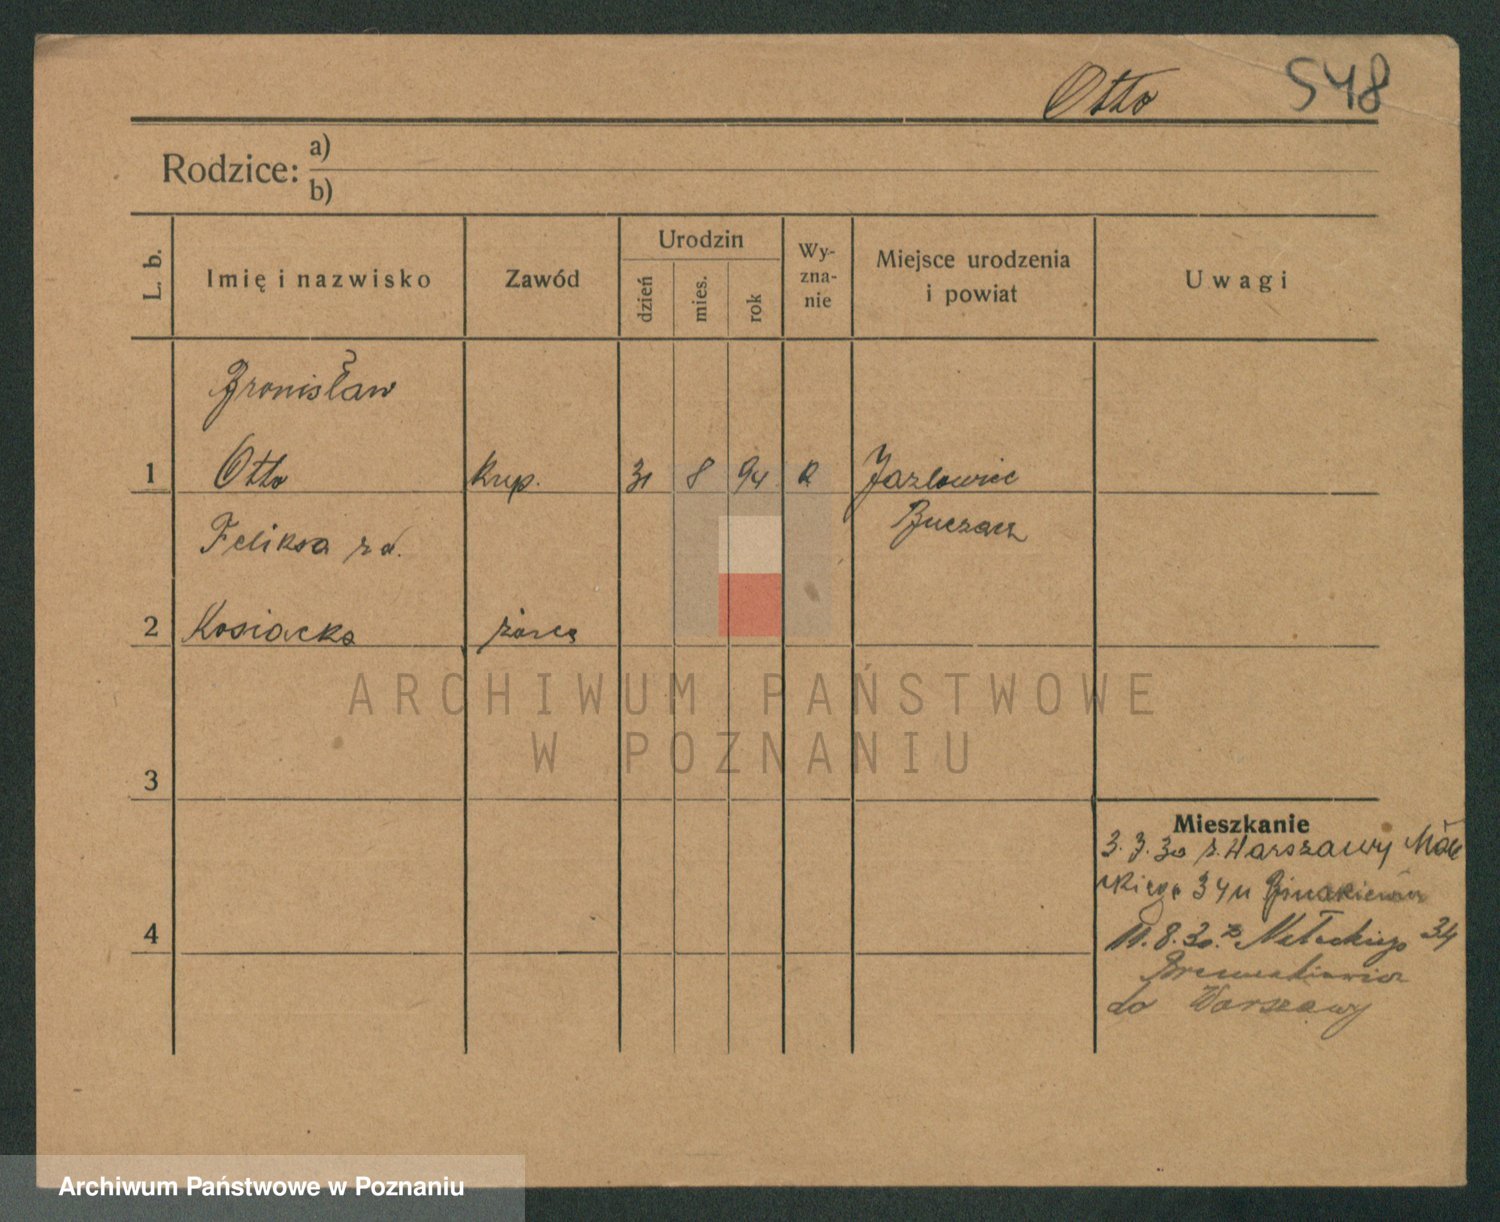 Otto 548
Rodzice: a)
b)
L. b.
Imię i nazwisko
Zawód
Urodzin
dzień
mies.
rok
Wy-
zna-
nie
Miejsce urodzenia
i powiat
Uwagi
Bronisław
1 Otto kup. 31 8 94 R Jazłowiec
Buczacz
Feliksa
2 Kosiacka żona
3
4
Mieszkanie
3. 3. 30 z Warszawy Małe
ckiego 34
11. 8. 30. z Małeckiego 34
do Warszawy
ARCHIWUM PAŃSTWOWE
W POZNANIU
Archiwum Państwowe w Poznaniu